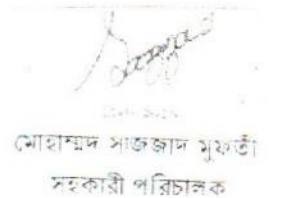 মোহাম্মদ সাজ্জাদ মুফতী
সহকারী পরিচালক